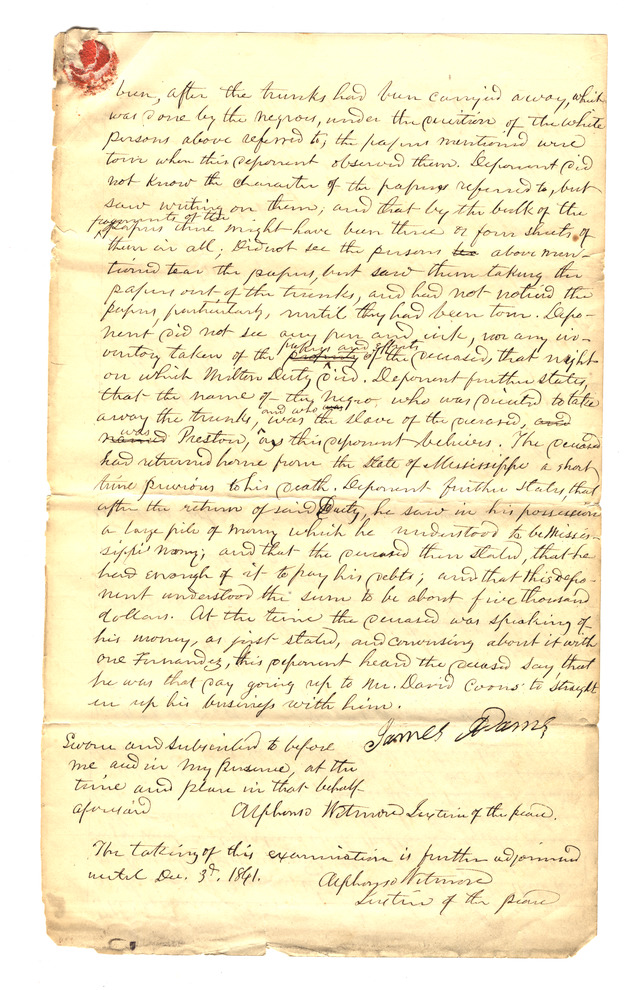 been, after the trunks had been carried away, which
was done by the negros, under the direction of the white
persons above referred to, the papers mentioned were
torn when this deponent observed them. Deponent did
not know the character of the papers referred to, but
saw writing on them, and that by the bulk of the
fragments of the
papers there might have been three or four sheets of
them in all; Did not see the persons above men-
tioned tear the papers, but saw them taking the
papers out of the trunks, and had not noticed the
papers, particularly, until they had been torn. Depo-
nent did not see any pen and ink, nor any in-
papers and effects
ventory taken of the property of the deceased, that night
on which Milton Duty died. Deponent further states,
that the name of the negro who was directed to take
and who was
away the trunks, was the slave of the deceased, and
was
named Preston, as this deponent believes. The deceased
had returned home from the State of Mississippi a short
time previous to his death. Deponent further states, that
after the return of said Duty, he saw in his possession
a large pile of money which he understood to be Missis-
sippi money; and that the deceased then stated, that he
had enough of it to pay his debts; and that this depo-
nent understood the sum to be about five thousand
dollars. At the time the deceased was speaking of
his money, as first stated, and conversing about it with
one Fernandez, this deponent heard the deceased say, that
he was that day going up to Mr. David Coons' to straight
en up his business with him.
James Adams
Sworn and subscribed to before
me and in my presence, at the
time and place in that behalf
aforesaid Alphonso Wetmore Justice of the peace.
The taking of this examination is further adjourned
until Dec. 3d. 1841. Alphonso Wetmore
Justice of the peace